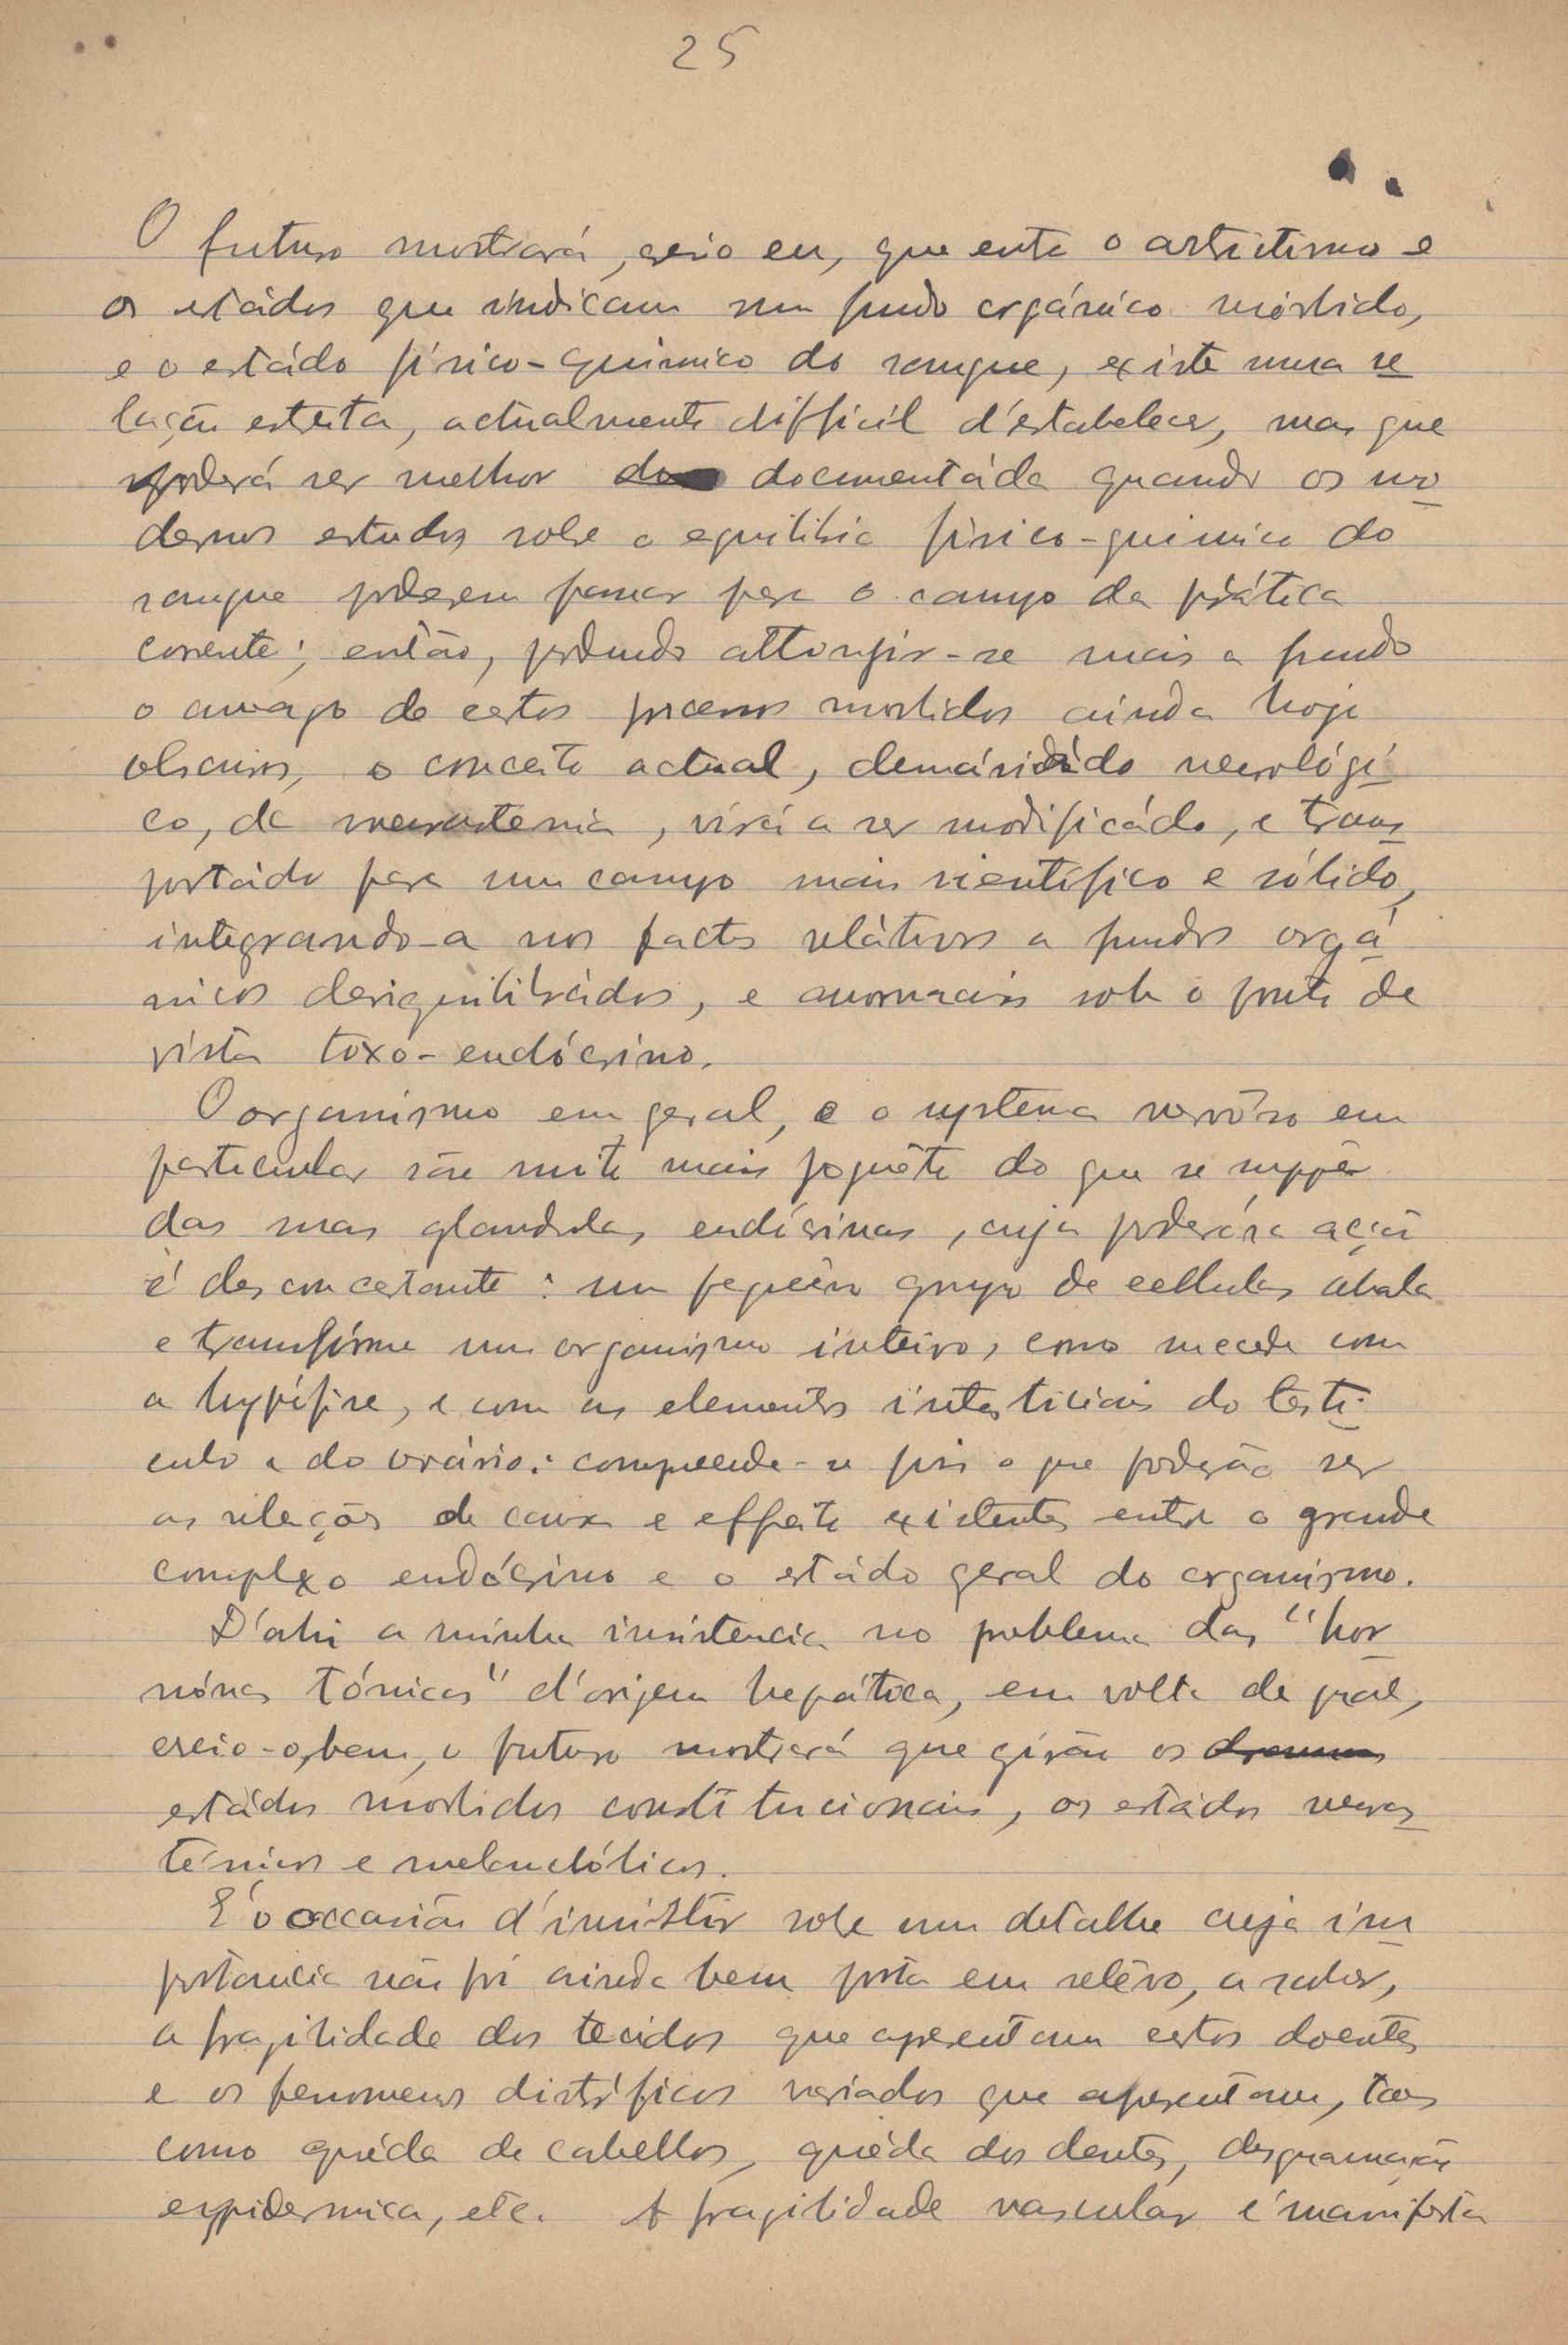 25
O futuro mostrará, creio eu, que entre o artritismo e
os estádos que indicam um fundo orgánico mórbido,
e o estádo físico-quimico do sangue, existe uma re
lação estreita, actualmente difficil d'estabelecer, mas que
poderá ser melhor documentáda quando os mo
dernos estudos sobre o equilibrio físico-quimico do
sangue poderem passar para o campo da prática
corrente; então, podendo attingir-se mais a fundo
o amago de certos processos morbidos ainda hoje
obscuros, o conceito actual, demásiádo neurológi
co, da neurastenia, virá a ser modificádo, e trans
portádo para um campo mais scientífico e sólido,
integrando-a nos factos relátivos a fundos orgá
nicos desiquilibrádos, e anormais sob o ponto de
vista toxo-endócrino.
O organismo em geral, e o systema nervôso em
particular são muito mais joguête do que se suppõe
das suas glandulas endócrinas, cuja poderósa ação
é desconcertante: um pequeno grupo de cellulas abala
e transfórma um organismo inteiro, como succede com
a hypófise, e com os elementos intersticiais do testi
culo e do ovário: comprehende-se pois o que poderão ser
as relações de causa e effeito existentes entre o grande
complexo endócrino e o estádo geral do organismo.
D'ahi a minha insistencia no problema das "hor
mónas tónicas" d'origem hepática, em volta da qual,
creio-o, bem, o futuro mostrará que girão os
estádos morbidos constitucionais, os estádos neuras
ténicos e melancólicos.
E' o occasião d'insistir sobre um detalhe cuja im
portancia não foi ainda bem posta em relêvo, a saber,
a fragilidade dos tecidos que apresentam estes doentes
e os fenomenos distróficos variados que apresentam, taes
como quéda de cabellos, quéda dos dentes, desquamação
erpidermica, etc. A fragilidade vascular é manifesta